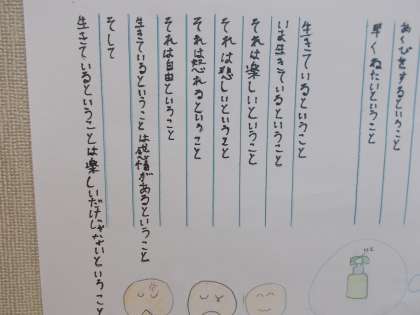 あくびをするということ
早くねたいということ
生きているということ
いま生きているということ
それは楽しいということ
それは悲しいということ
それは怒れるということ
それは自由ということ
生きているということは感情があるということ
そして
生きているということは楽しいだけじゃないということ